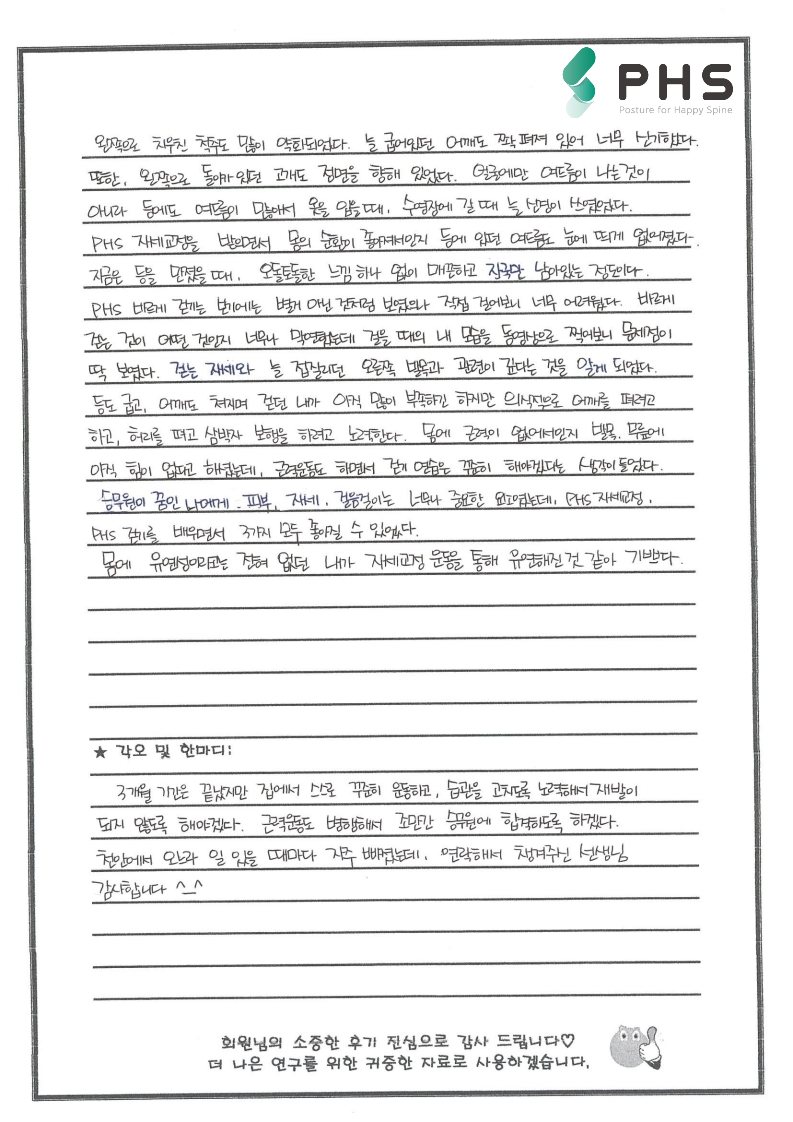 PHS
Posture for Happy Spine
왼쪽으로 치우친 척추도 많이 약화되었다. 늘 굽어있던 어깨도 쫙 펴져 있어 너무 신기했다.
또한, 왼쪽으로 돌아가 있던 고개도 정면을 향해 있었다. 얼굴에만 여드름이 나는것이
아니라 등에도 여드름이 많아서 옷을 입을때, 수영장에 갈 때 늘 신경이 쓰였었다.
PHS 자세교정을 받으면서 몸의 순환이 좋아져서인지 등에 있던 여드름도 눈에 띄게 없어졌다.
지금은 등을 만졌을 때, 오돌토돌한 느낌 하나 없이 매끈하고 자국만 남아있는 정도이다.
PHS 바르게 걷기는 보기에는 별거 아닌 것처럼 보였으나 직접 걸어보니 너무 어려웠다. 바르게
걷는 것이 어떤 것인지 너무나 막연했는데 걸을 때의 내 모습을 동영상으로 찍어보니 문제점이
딱 보였다. 걷는 자세와 늘 접질리던 오른쪽 발목과 관련이 깊다는 것을 알게 되었다.
등도 굽고, 어깨도 쳐지며 걷던 내가 아직 많이 부족하긴 하지만 의식적으로 어깨를 펴려고
하고, 허리를 펴고 삼박자 보행을 하려고 노력한다. 몸에 근력이 없어서인지 발목, 무릎에
아직 힘이 없다고 하셨는데, 근력운동도 하면서 걷기 연습은 꾸준히 해야겠다는 생각이 들었다.
승무원이 꿈인 나에게 피부, 자세, 걸음걸이는 너무나 중요한 요소였는데, PHS 자세교정,
PHS 걷기를 배우면서 3가지 모두 좋아질 수 있었다.
몸에 유연성이라고는 전혀 없던 내가 자세교정 운동을 통해 유연해진 것 같아 기쁘다.
★ 각오 및 한마디:
3개월 기간은 끝났지만 집에서 스스로 꾸준히 운동하고, 습관을 고치도록 노력해서 재발이
되지 않도록 해야겠다. 근력운동도 병행해서 조만간 승무원에 합격하도록 하겠다.
천안에서 오느라 일 있을 때마다 자주 빠졌는데, 연락해서 챙겨주신 선생님
감사합니다 ^_^
회원님의 소중한 후기 진심으로 감사 드립니다♡
더 나은 연구를 위한 귀중한 자료로 사용하겠습니다.